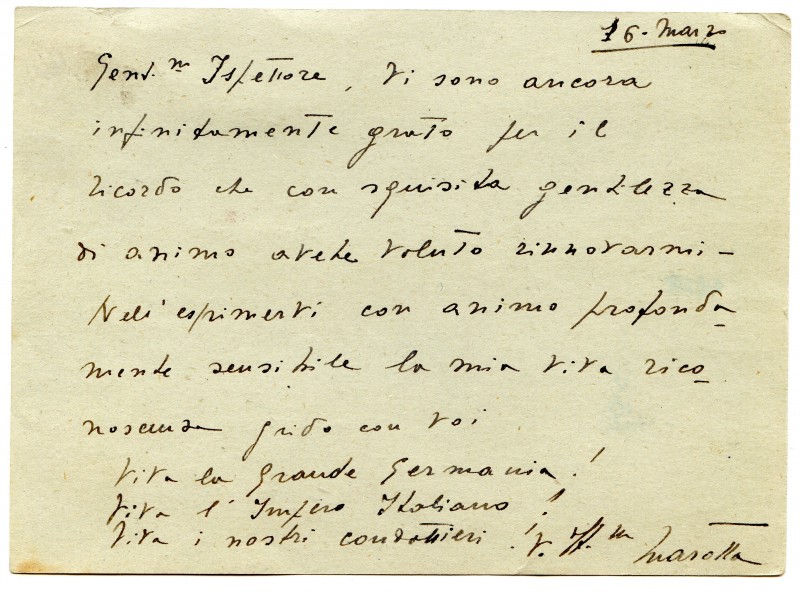 16. Marzo
Gent.mo Ispettore, Vi sono ancora
infinitamente grato per il
ricordo che con squisita gentilezza
di animo avete voluto rinnovarmi —
Nell'esprimervi con animo profonda-
mente sensibile la mia viva rico-
noscenza grido con voi
Viva la Grande Germania!
Viva l'Impero Italiano!
Viva i nostri condottieri!
V. Aff.mo Marotta